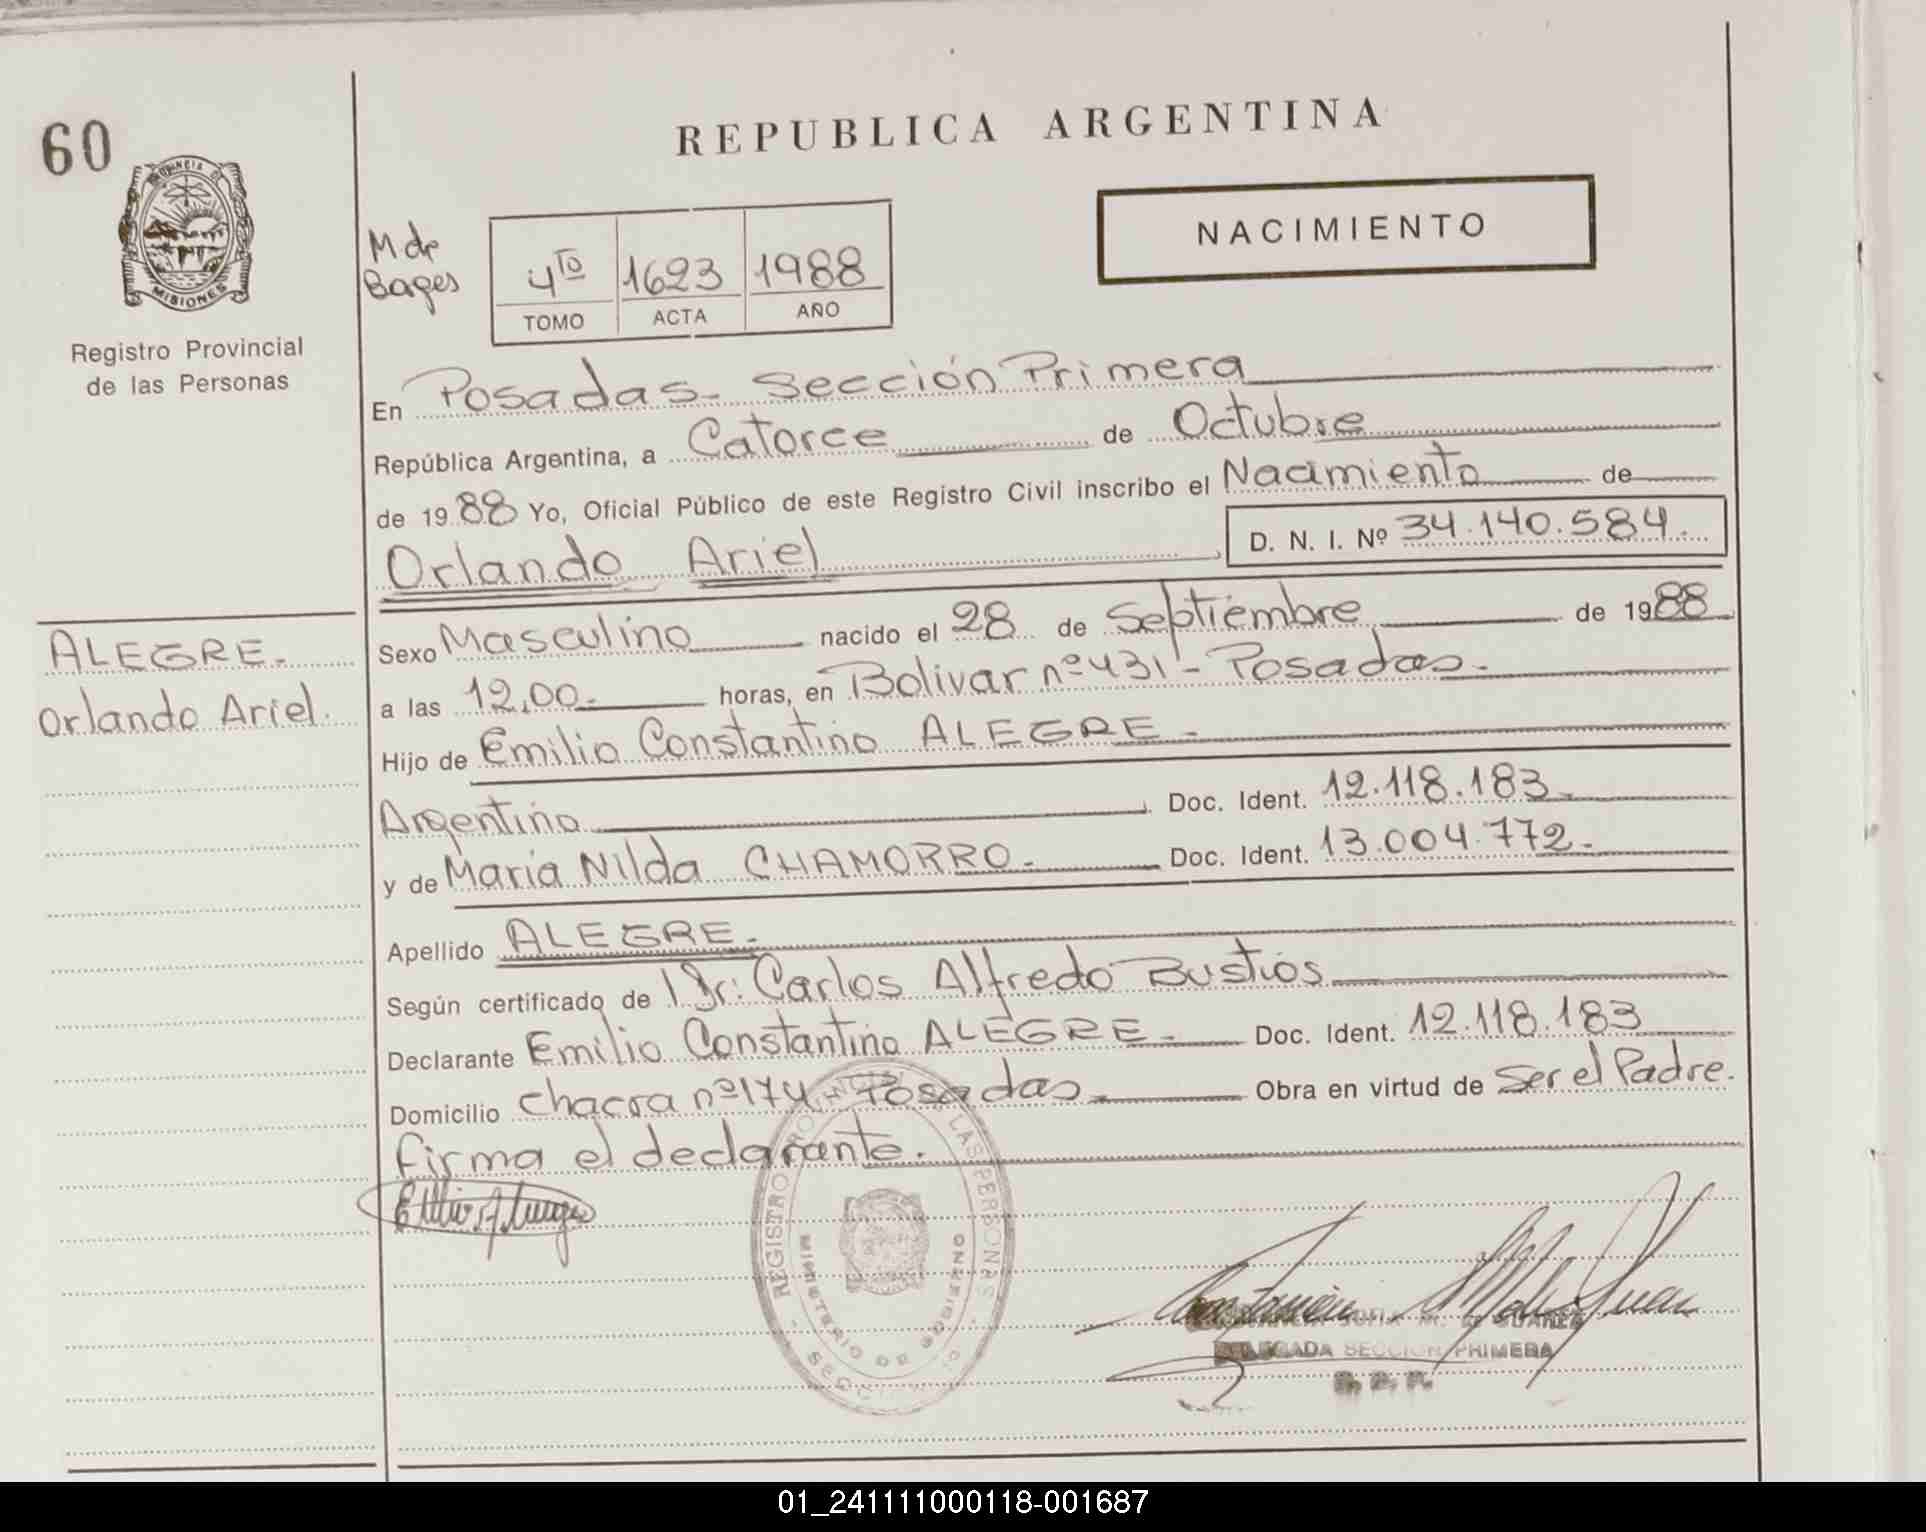 60
PROVINCIA DE
MISIONES
Registro Provincial
de las Personas
REPUBLICA ARGENTINA
NACIMIENTO
M de
Bages
4TO 1623 1988
TOMO ACTA AÑO
En Posadas - Sección Primera
República Argentina, a Catorce de Octubre
de 1988 Yo, Oficial Público de este Registro Civil inscribo el Nacimiento de
Orlando Ariel D. N. I. Nº 34.140.584.
ALEGRE.
Orlando Ariel.
Sexo Masculino nacido el 28 de Septiembre de 1988
a las 12,00 horas, en Bolivar nº 431 - Posadas.
Hijo de Emilio Constantino ALEGRE.
Argentino Doc. Ident. 12.118.183.
y de Maria Nilda CHAMORRO. Doc. Ident. 13.004.772.
Apellido ALEGRE.
Según certificado de Dr: Carlos Alfredo Bustios
Declarante Emilio Constantino ALEGRE. Doc. Ident. 12.118.183
Domicilio chacra nº 174 Posadas. Obra en virtud de Ser el Padre.
firma el declarante.
REGISTRO PROVINCIAL DE LAS PERSONAS
MINISTERIO DE GOBIERNO
SOFIA M. DE SUAREZ
DELEGADA SECCION PRIMERA
R. P. P.
01_241111000118-001687